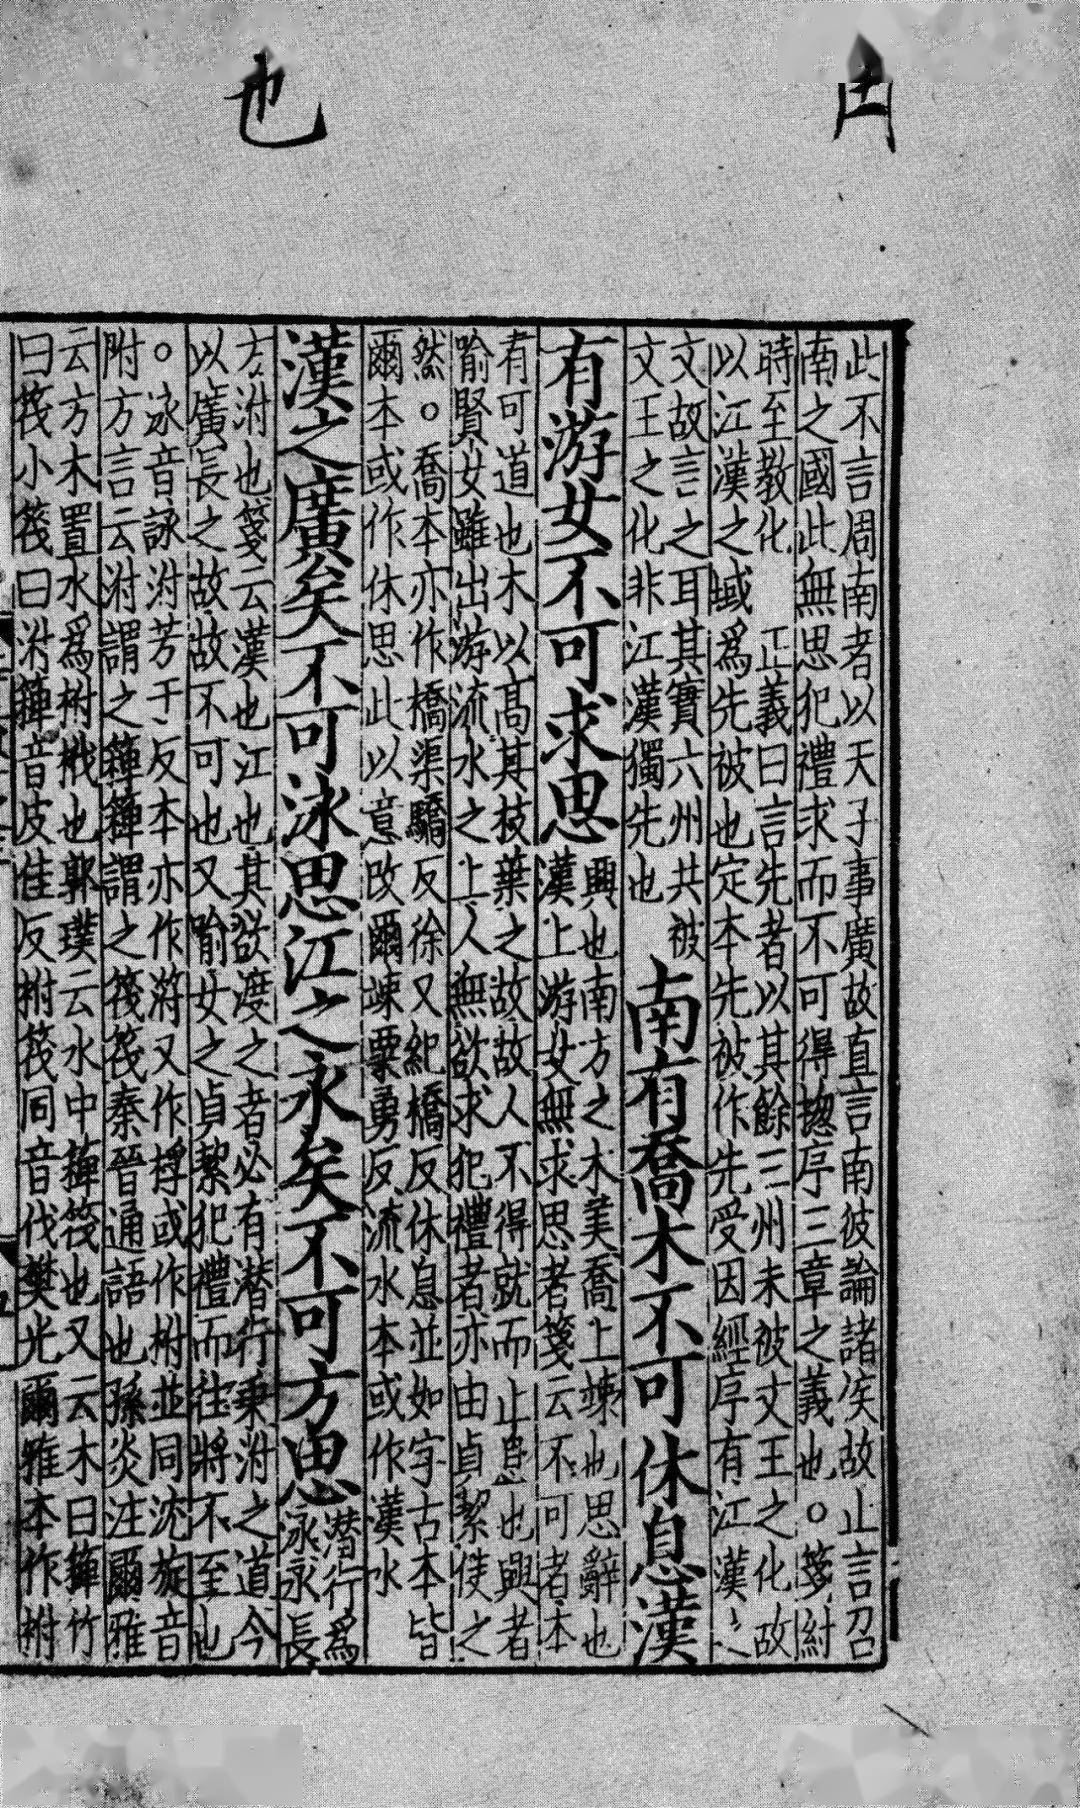 也
此不言周南者以天子事廣故直言南彼論諸侯故止言召
南之國此無思犯禮求而不可得揔序三章之義也○箋紂
時至教化 正義曰言先者以其餘三州未被文王之化故
以江漢之域爲先被也定本先被作先受因經序有江漢之
文故言之耳其實六州共被
文王之化非江漢獨先也
南有喬木不可休息漢
有游女不可求思
興也南方之木美喬上竦也思辭也
漢上游女無求思者箋云不可者本
有可道也木以高其枝葉之故故人不得就而止息也興者
喻賢女雖出游流水之上人無欲求犯禮者亦由貞絜使之
然○喬本亦作橋渠驕反徐又紀橋反休息並如字古本皆
爾本或作休思此以意改爾竦粟勇反流水本或作漢水
漢之廣矣不可泳思江之永矣不可方思
潛行爲
泳永長
方泭也箋云漢也江也其欲渡之者必有潛行乘泭之道今
以廣長之故故不可也又喻女之貞絜犯禮而往將不至也
○泳音詠泭芳于反本亦作㳍又作桴或作柎並同沈旋音
附方言云泭謂之䉬䉬謂之筏筏秦晉通語也孫炎注爾雅
云方木置水爲柎栰也郭璞云水中䉬筏也又云木曰䉬竹
曰筏小筏曰泭䉬音皮佳反柎筏同音伐樊光爾雅本作柎